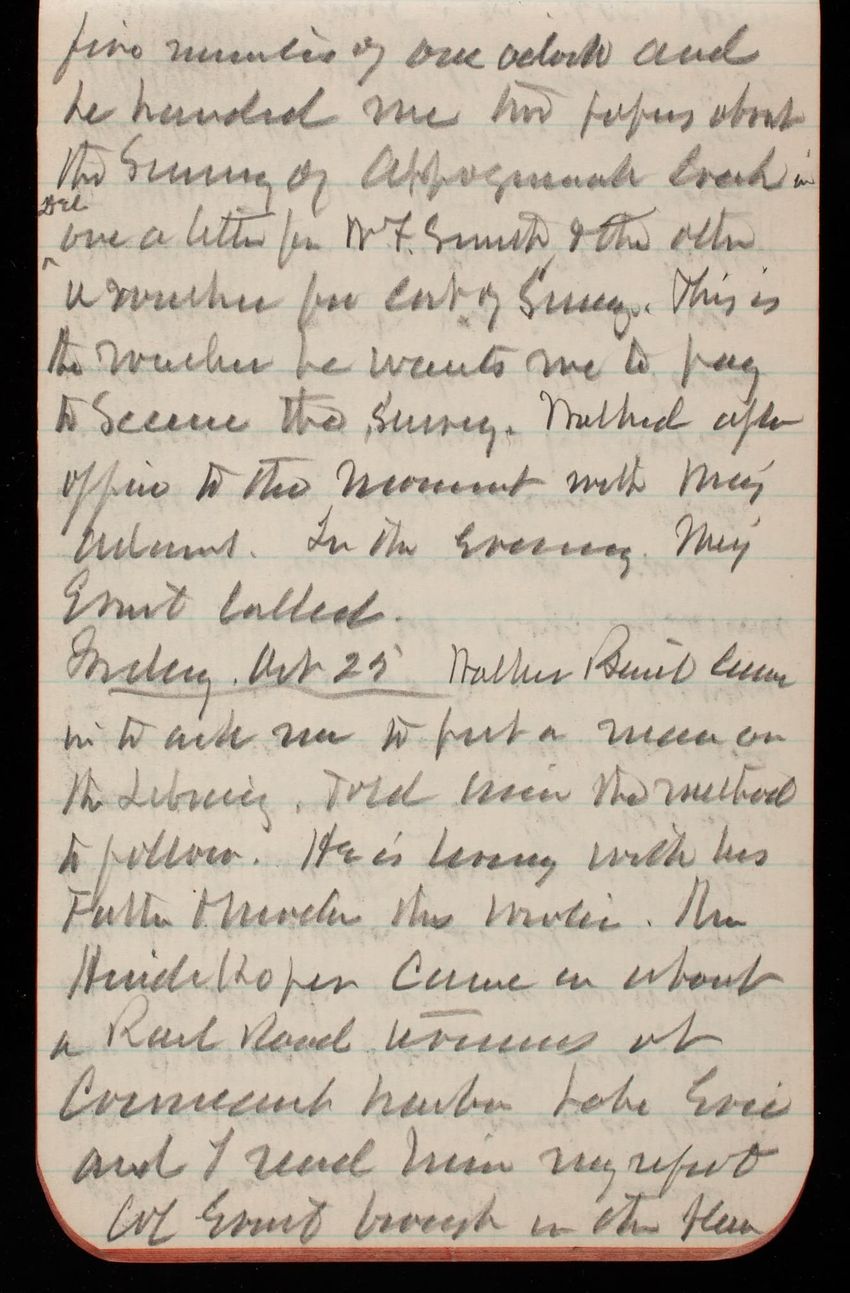 five minutes of one oclock and
he handed me two papers about
the Survey of Creek in
Del
one a letter for W F. Smith, & the other
a voucher for Cost of Survey. This is
the voucher he wants me to pay
to Secure the Survey. Walked after
office to the Monument with Maj
Adams. In the Evening Maj
Ernst Called.
Friday. Oct 25 Walker Came
in to ask me to put a man on
the Library. Told him the method
to follow. He is living with his
Father this Winter. Then
HuideKoper Came in about
a Rail Road at
Conneaut harbor Lake Erie
and I read him my report
Col Ernst brough in the